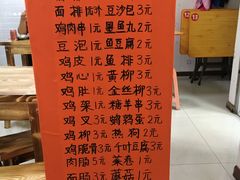 面排1元 豆沙包3元
鸡肉串1元 墨鱼丸2元
豆泡1元 鱼豆腐2元
鸡皮1元 鱼排
鸡心1元 黄柳3元
鸡肚1元 金丝柳3元
鸡架1元 糯羊串3元
鸡叉3元 鹌鹑蛋2元
鸡柳3元 热狗2元
鸡脆骨3元 千叶豆腐3元
肉肠5元 菜卷1元
面肠3元 蘑菇1元